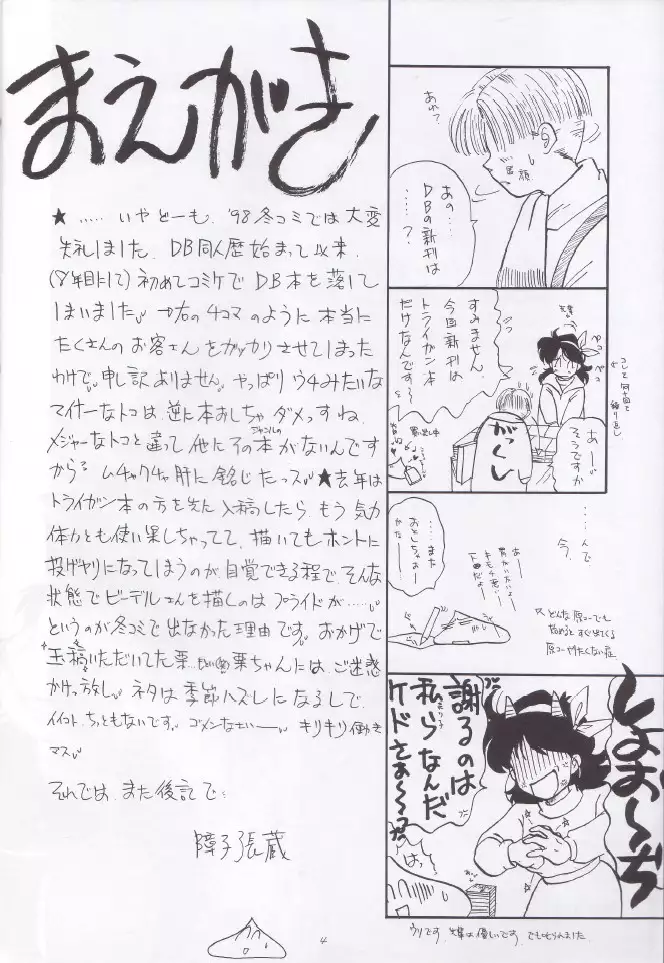 まえがき
★ ..... いやどーも、'98冬コミでは大変
失礼しました。DB同人歴始まって以来、
(8年目にして) 初めてコミケでDB本を落して
しまいました →右の4コマのように本当に
たくさんのお客さんをガッカリさせてしまった
わけで 申し訳ありません。やっぱりウチみたいな
マイナーなトコは、逆に本おしちゃダメっすね
メジャーなトコと違って他にそのジャンルの本がないんです
から ムチャクチャ肝に銘じたっス ★去年は
トライガン本の方を先に入稿したら、もう気力
体力とも使い果しちゃってて、描いてもホントに
投げヤリになってしまうのが自覚できる程で、そんな
状態でビーデルさんを描くのはプライドが.....
というのが冬コミで出なかった理由です。おかげで
玉稿いただいてた栗ちゃんには、ご迷惑
かけっ放し ネタは季節ハズレになるしで、
イイコト、ちっともないです。ゴメンなさい〜 キリキリ働き
マス
それでは、また後記で..
障子張蔵
あれ?
笑顔
あの....
DBの新刊は
.....?
すみません、
今回新刊は
トライガン本
だけなんです〜
ペコ
ペコ
コレを何十回と
繰り返し
あー
そうですか
がっくし
買い出し中
....んで
今、
....また
おそちゃぁー
かたー
あー
胃がいたいよー
キモチ悪いー
下田だよー
どんな原コーでも
始めるとすぐ出てくる
原コーやりたくない症
しょお〜ぢ
謝るのは
私らなんだ
ケドさぁ〜〜っ?
はっ
ウソです、先輩は優しいです。でものりんました
4